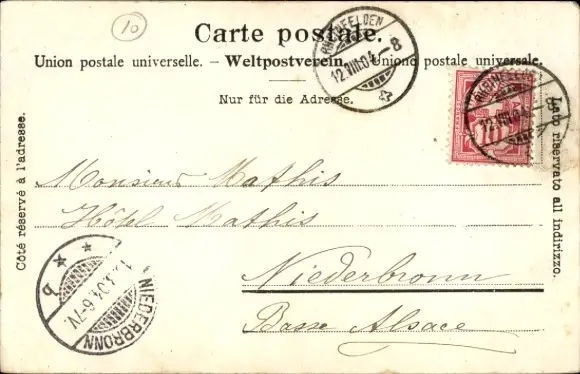 10
Carte postale.
Union postale universelle. – Weltpostverein. – Unione postale universale.
Nur für die Adresse.
Côté réservé à l'adresse.
Lato riservato all indirizzo.
RHEINFELDEN
12.VIII.04.-8
RHEINFELDEN
12.VIII.04.-8
10
Monsieur Mathis
Hôtel Mathis
Niederbronn
Basse Alsace
NIEDERBRONN
b